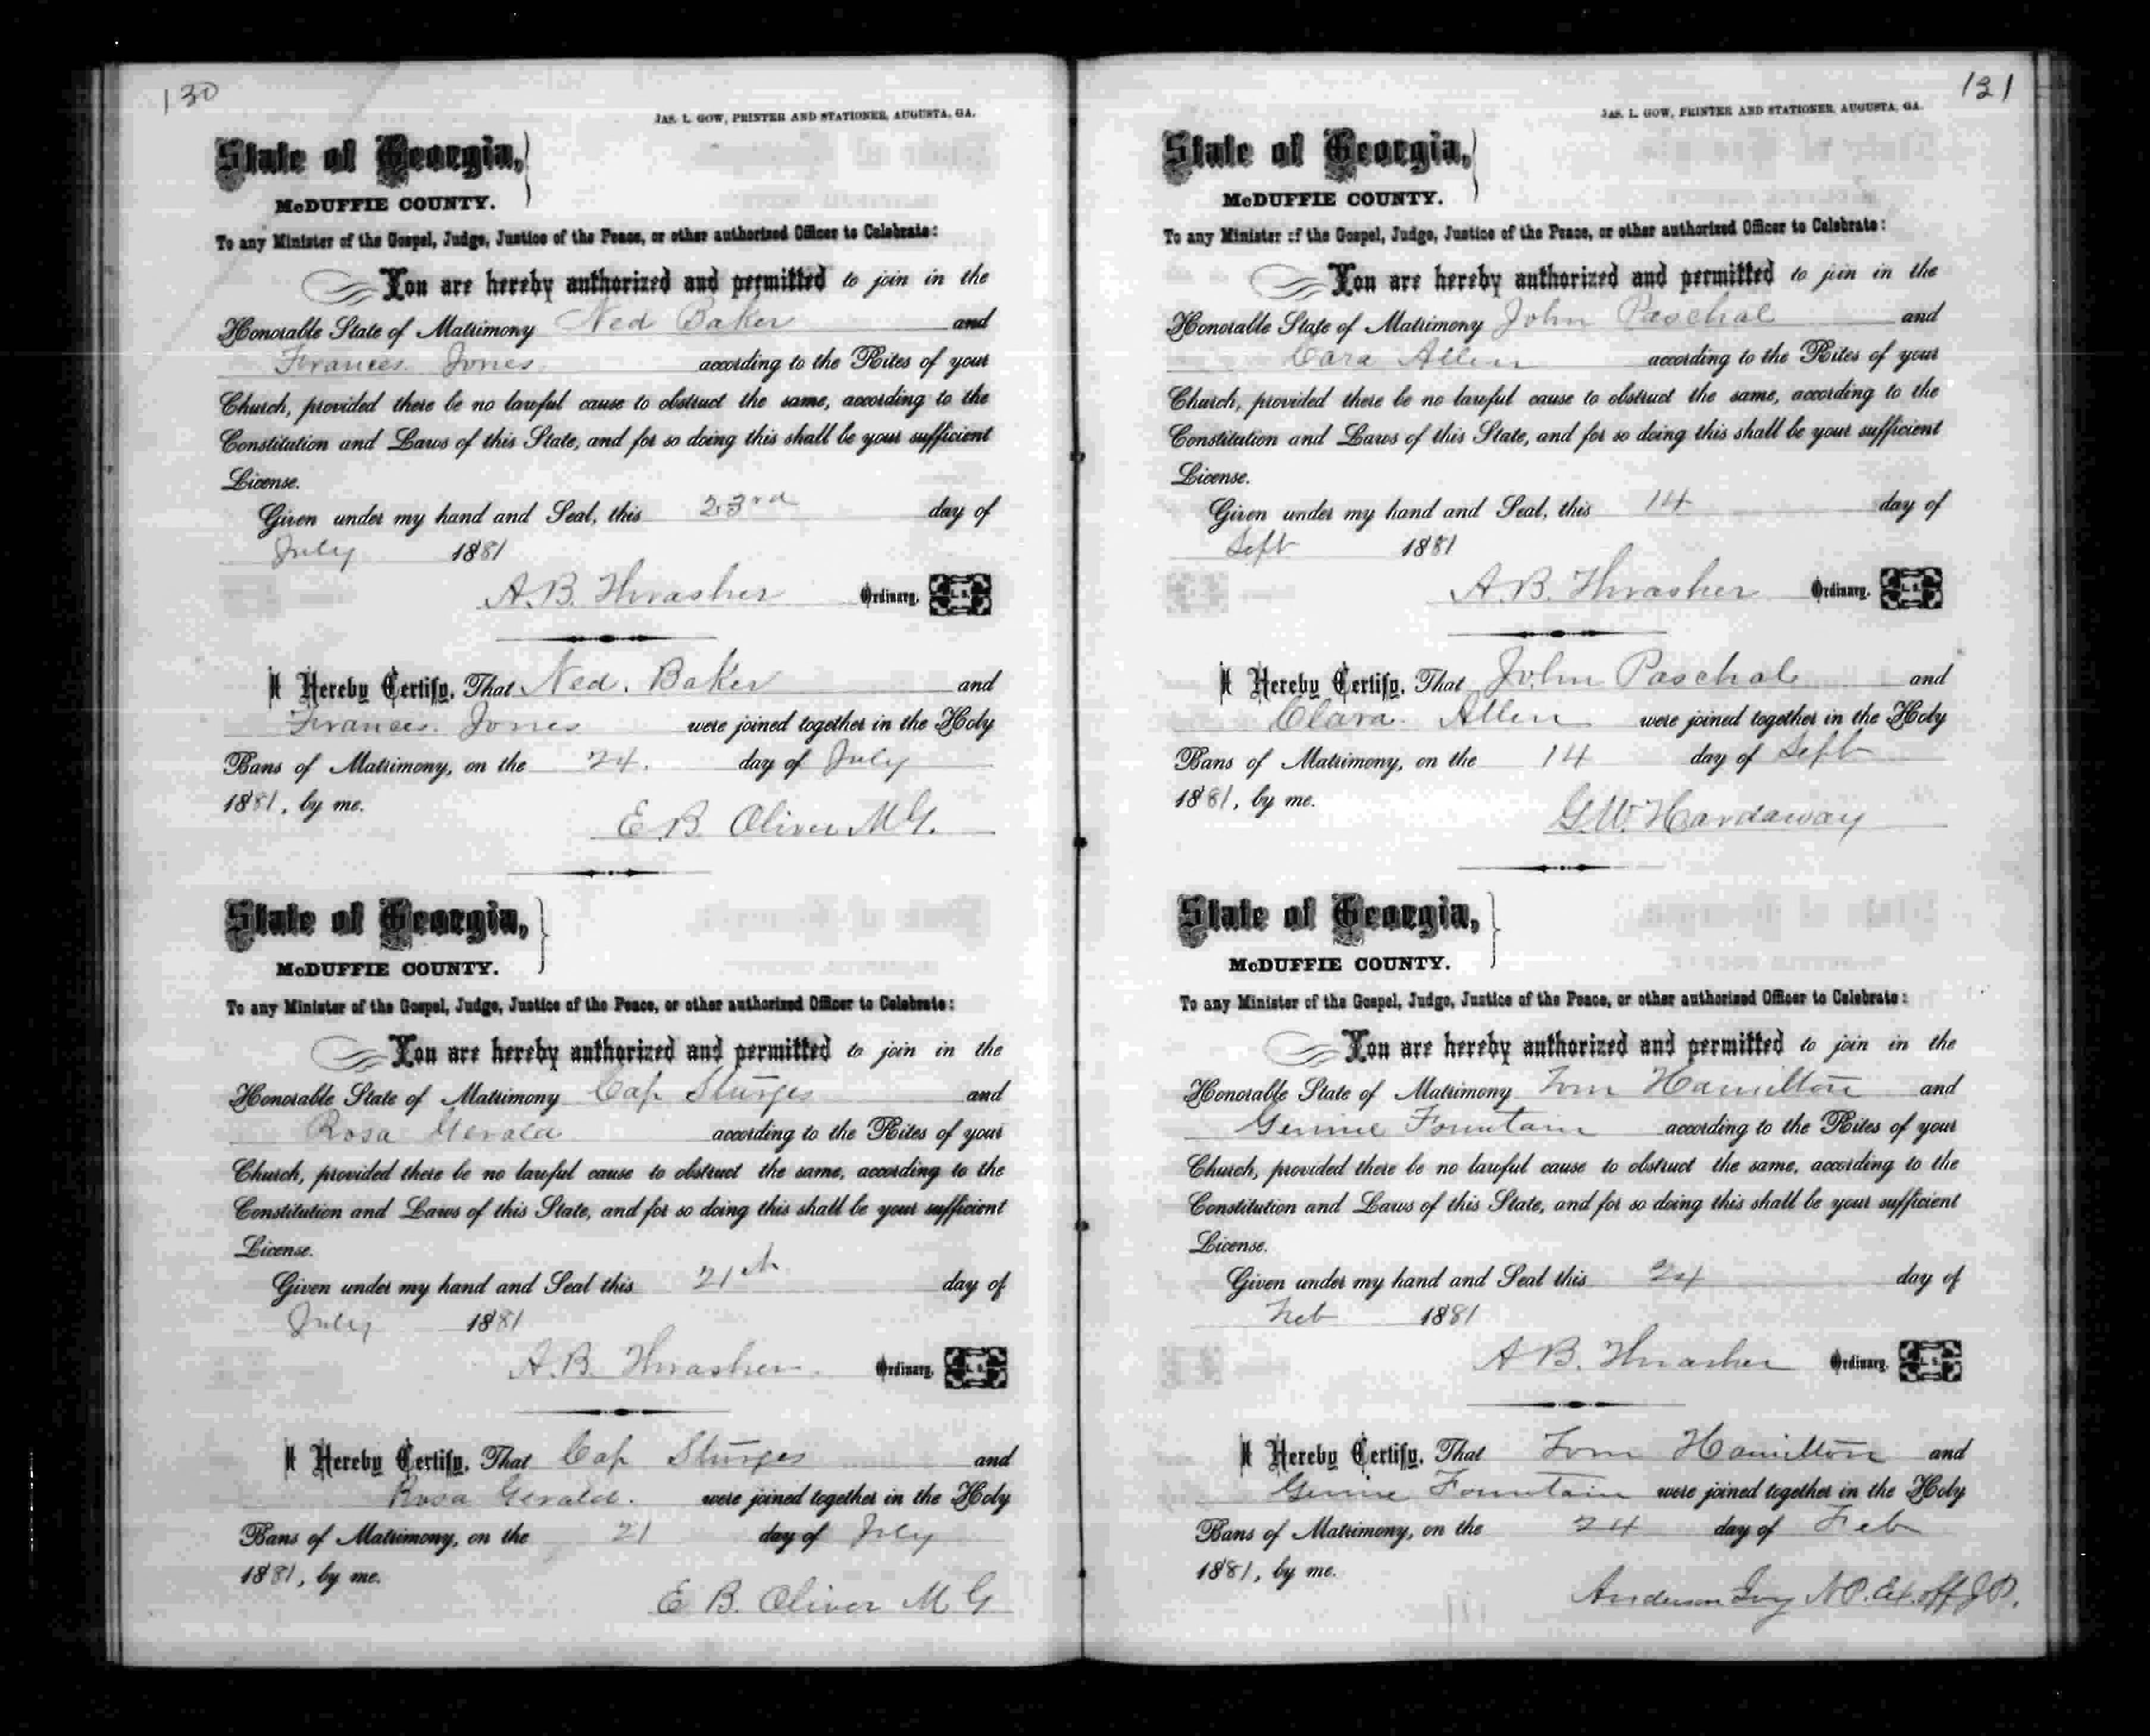 130
JAS. L. GOW, PRINTER AND STATIONER, AUGUSTA, GA.
State of Georgia,
McDUFFIE COUNTY.
To any Minister of the Gospel, Judge, Justice of the Peace, or other authorized Officer to Celebrate:
You are hereby authorized and permitted to join in the
Honorable State of Matrimony Ned Baker and
Frances Jones according to the Rites of your
Church, provided there be no lawful cause to obstruct the same, according to the
Constitution and Laws of this State, and for so doing this shall be your sufficient
License.
Given under my hand and Seal, this 23rd day of
July 1881
A. B. Thrasher Ordinary. L. S.
I Hereby Certify, That Ned. Baker and
Frances. Jones were joined together in the Holy
Bans of Matrimony, on the 24. day of July
1881, by me.
E. B. Oliver M. G.
State of Georgia,
McDUFFIE COUNTY.
To any Minister of the Gospel, Judge, Justice of the Peace, or other authorized Officer to Celebrate:
You are hereby authorized and permitted to join in the
Honorable State of Matrimony Cap Sturges and
Rosa Gerald according to the Rites of your
Church, provided there be no lawful cause to obstruct the same, according to the
Constitution and Laws of this State, and for so doing this shall be your sufficient
License.
Given under my hand and Seal this 21th day of
July 1881
A. B. Thrasher. Ordinary. L. S.
I Hereby Certify, That Cap Sturges and
Rosa Gerald. were joined together in the Holy
Bans of Matrimony, on the 21 day of July
1881, by me.
E B. Oliver M G
131
JAS. L. GOW, PRINTER AND STATIONER, AUGUSTA, GA.
State of Georgia,
McDUFFIE COUNTY.
To any Minister of the Gospel, Judge, Justice of the Peace, or other authorized Officer to Celebrate:
You are hereby authorized and permitted to join in the
Honorable State of Matrimony John Paschal and
Cara Allen according to the Rites of your
Church, provided there be no lawful cause to obstruct the same, according to the
Constitution and Laws of this State, and for so doing this shall be your sufficient
License.
Given under my hand and Seal, this 14 day of
Sept 1881
A. B. Thrasher Ordinary. L. S.
I Hereby Certify, That John Paschal and
Clara. Allen were joined together in the Holy
Bans of Matrimony, on the 14 day of Sept
1881, by me.
G. W. Hardaway
State of Georgia,
McDUFFIE COUNTY.
To any Minister of the Gospel, Judge, Justice of the Peace, or other authorized Officer to Celebrate:
You are hereby authorized and permitted to join in the
Honorable State of Matrimony Tom Hamilton and
Gennie Fountain according to the Rites of your
Church, provided there be no lawful cause to obstruct the same, according to the
Constitution and Laws of this State, and for so doing this shall be your sufficient
License.
Given under my hand and Seal this 24 day of
Feb 1881
A B. Thrasher Ordinary. L. S.
I Hereby Certify, That Tom Hamilton and
Gennie Fountain were joined together in the Holy
Bans of Matrimony, on the 24 day of Feb
1881, by me.
Anderson Ivy N. P. Ex. off J. P.